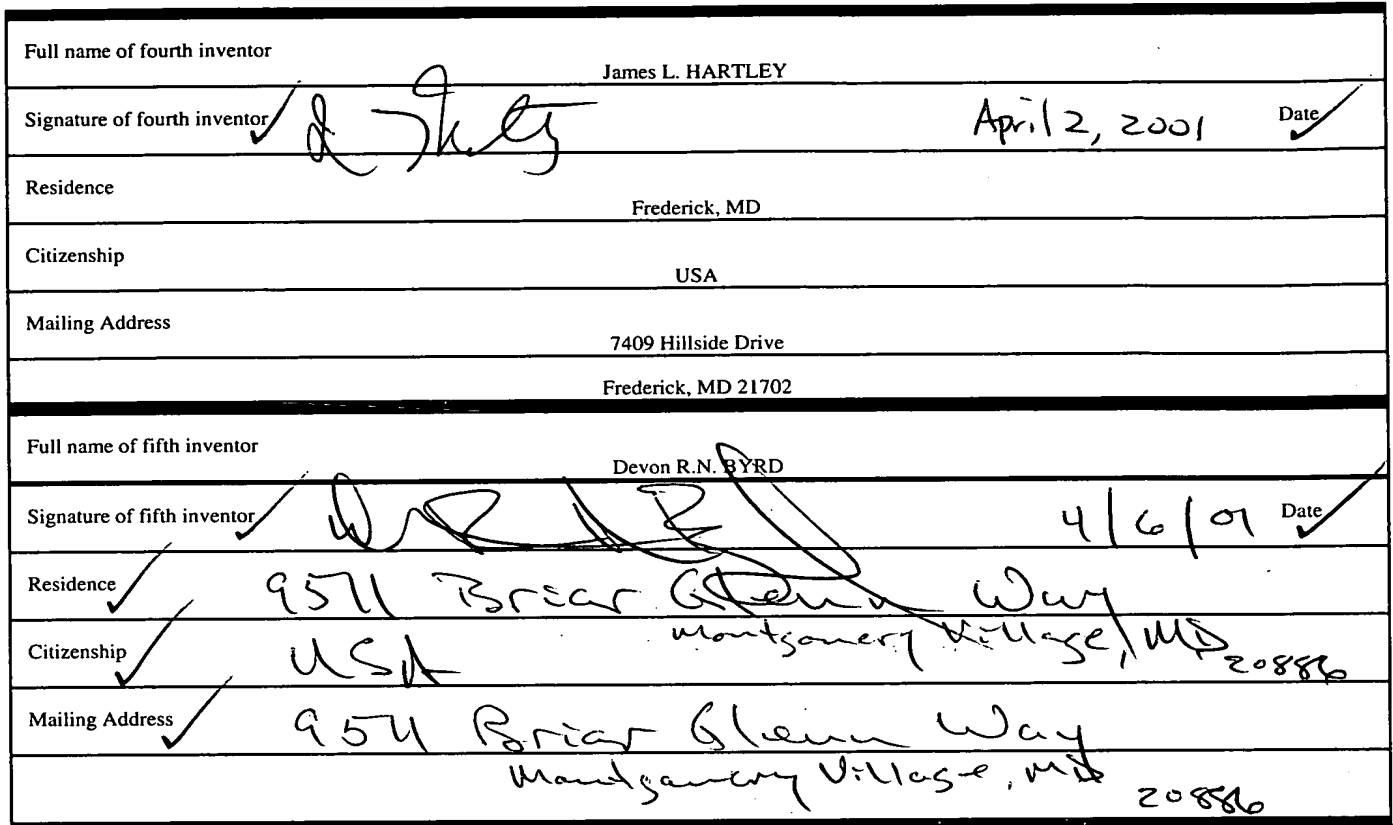 Full name of fourth inventor
James L. HARTLEY
Signature of fourth inventor April 2, 2001 Date
Residence
Frederick, MD
Citizenship
USA
Mailing Address
7409 Hillside Drive
Frederick, MD 21702
Full name of fifth inventor
Devon R.N. BYRD
Signature of fifth inventor 4/6/01 Date
Residence 9571 Briar Glenn Way
Montgomery Village, MD 20886
Citizenship USA
Mailing Address 9571 Briar Glenn Way
Montgomery Village, MD 20886